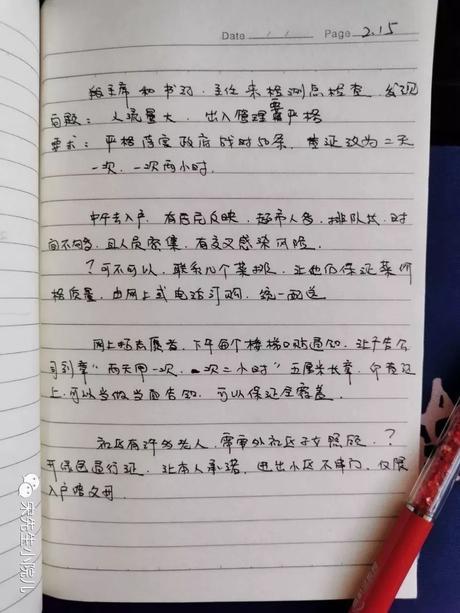 Date / / Page 2.15
主席和书记、主任来检测点检查,发现
问题:人流量大,出入管理要严格
要求:严格落实政府战时50条,凭证改为二天
一次,一次两小时.
中午去入户,有居民反映,超市人多,排队长,时
间不够,且人员密集,有交叉感染风险.
?可不可以,联系几个菜摊,让他们保证菜价
格质量,由网上或电话订购,统一配送
网上招志愿者,下午每个楼梯口贴通知,让广告公
司刻章"两天用一次,一次二小时"
上,可以当做当面告知,可以保证全覆盖.
社区有许多老人,需要外社区子女照顾,?
开绿色通行证,让本人承诺,进出小区不串门,仅限
入户父母.
宋先生小院儿